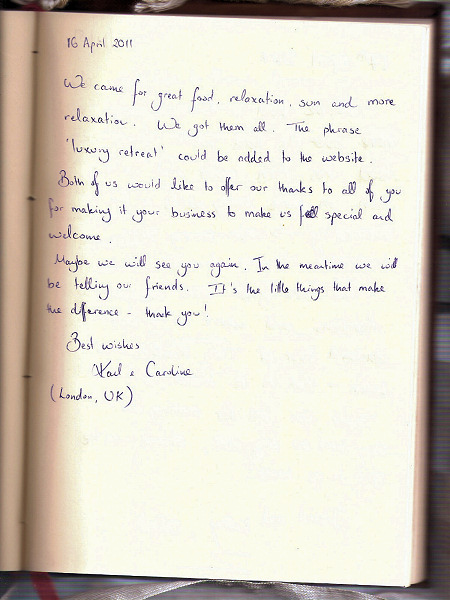 16 April 2011
We came for great food, relaxation, sun and more
relaxation. We got them all. The phrase
'luxury retreat' could be added to the website.
Both of us would like to offer our thanks to all of you
for making it your business to make us feel special and
welcome.
Maybe we will see you again. In the meantime we will
be telling our friends. It's the little things that make
the difference - thank you!
Best wishes
Karl & Caroline
(London, UK)